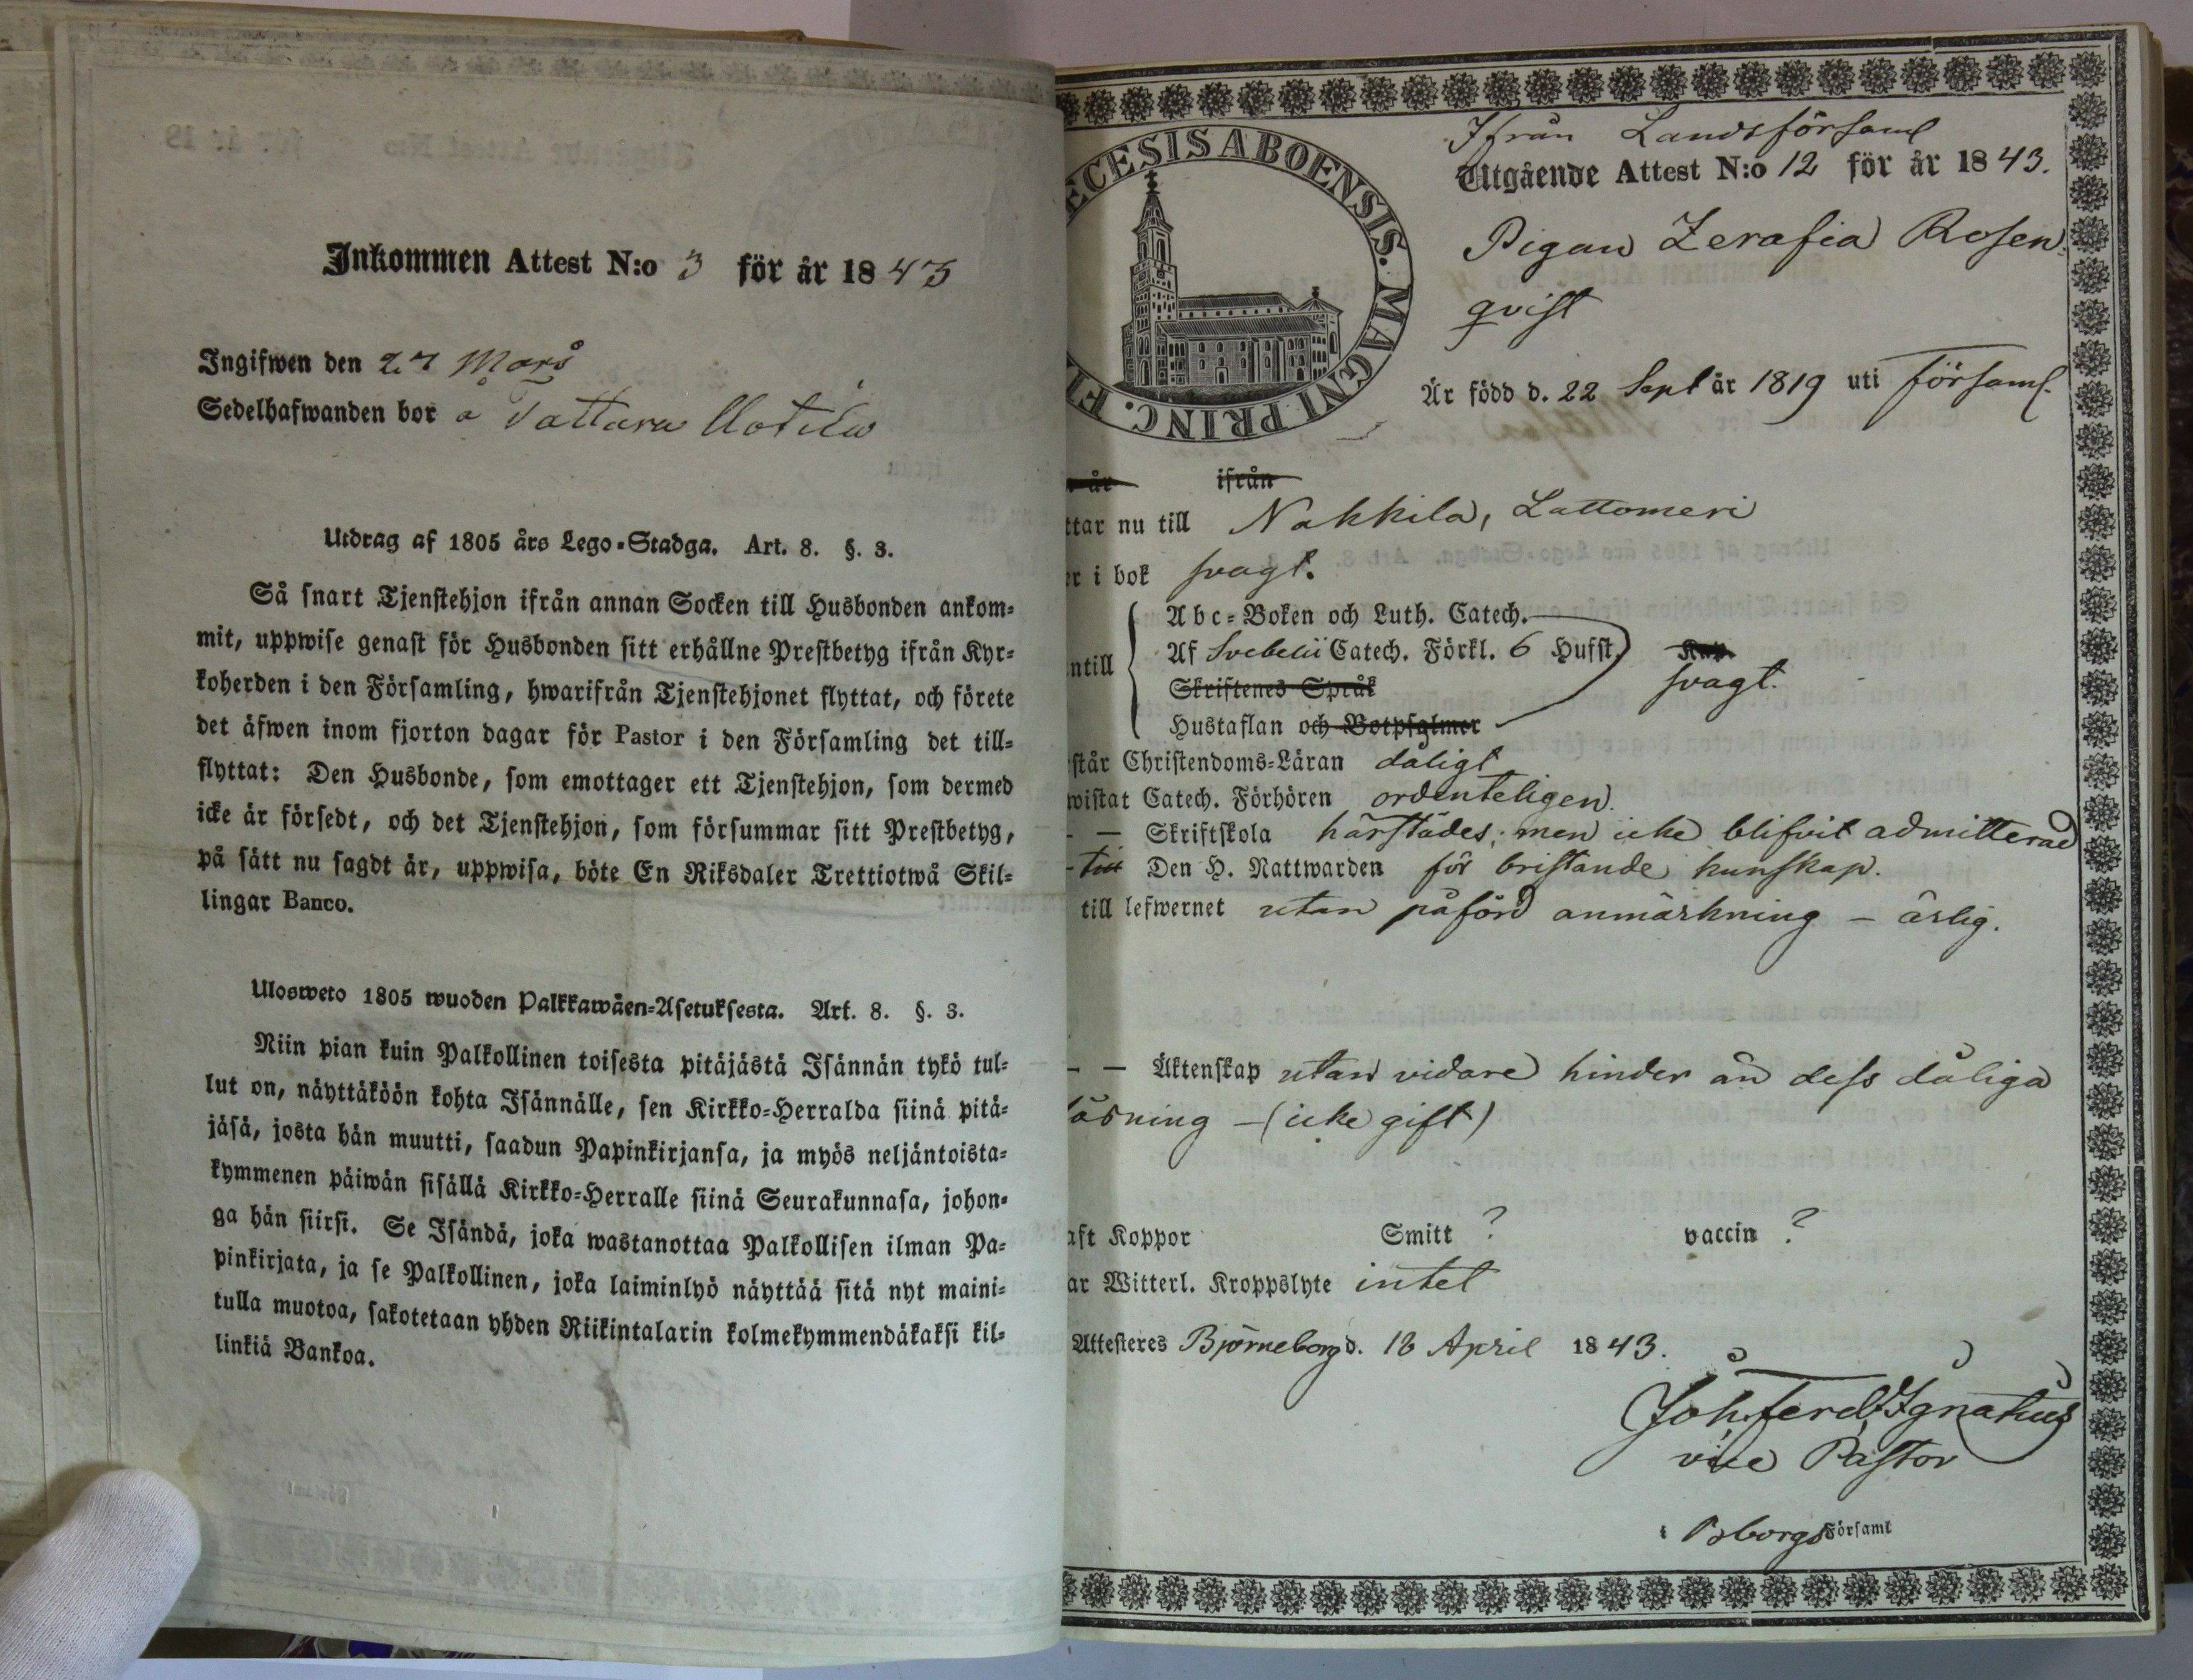 Inkommen Attest N:o 3 för år 1843
Ingifwen den 27 Mars
Sedelhafwanden bor a Tattara
Utdrag af 1805 års Lego-Stadga. Art. 8. §. 3.
Så snart Tjenstehjon ifrån annan Socken till Husbonden ankom-
mit, uppwise genast för Husbonden sitt erhållne Prestbetyg ifrån Kyr-
koherden i den Församling, hwarifrån Tjenstehjonet flyttat, och förete
det äfwen inom fjorton dagar för Pastor i den Församling det till-
flyttat: Den Husbonde, som emottager ett Tjenstehjon, som dermed
icke är försedt, och det Tjenstehjon, som försummar sitt Prestbetyg,
på sätt nu sagdt är, uppwisa, böte En Riksdaler Trettiotwå Skil-
lingar Banco.
Ulosweto 1805 wuoden Palkkawäen-Asetuksesta. Art. 8. §. 3.
Niin pian kuin Palkollinen toisesta pitäjästä Isännän tykö tul-
lut on, näyttäköön kohta Isännälle, sen Kirkko-Herralda siinä pitä-
jäsä, josta hän muutti, saadun Papinkirjansa, ja myös neljäntoista-
kymmenen päiwän sisällä Kirkko-Herralle siinä Seurakunnasa, johon-
ga hän siirsi. Se Isändä, joka wastanottaa Palkollisen ilman Pa-
pinkirjata, ja se Palkollinen, joka laiminlyö näyttää sitä nyt maini-
tulla muotoa, sakotetaan yhden Riikintalarin kolmekymmendäkaksi kil-
linkiä Bankoa.
ECESIS ABOENSIS. MAGNI PRINC. FI
Ifrån Landsförsaml
Utgående Attest N:o 12 för år 1843.
Pigan Zerafia Rosen
qvist
Är född d. 22 Sept år 1819 uti Församl.
år ifrån
ttar nu till Nakkila, Lattomeri
er i bok svagt.
Abc-Boken och Luth. Catech.
Af Svebelii Catech. Förkl. 6 Hufst.
ntill svagt.
Skriftenes Språk
Hustaflan och Botpsalmer
står Christendoms-Läran daligt
wistat Catech. Förhören ordenteligen.
- — Skriftskola härstädes; men icke blifvit admitterad
- till Den H. Nattwarden för bristande kunskap.
till lefwernet utan påförd anmärkning - ärlig.
- — Äktenskap utan vidare hinder än dess dåliga
läsning - (icke gift)
aft Koppor Smitt ? vaccin ?
ar Witterl. Kroppslyte intet
Attesteres Björneborg d. 18 April 1843.
Joh. Ferd. Ignatius
vice Pastor
i Bborgs Församl